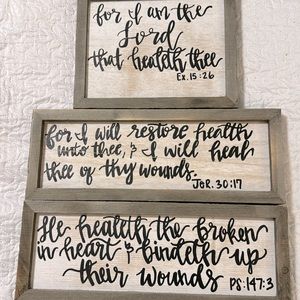 for I am the
Lord
that healeth thee
Ex. 15:26
for I will restore health
unto thee, & I will heal
thee of thy wounds.
JER. 30:17
He healeth the broken
in heart & bindeth up
their wounds
PS: 147:3